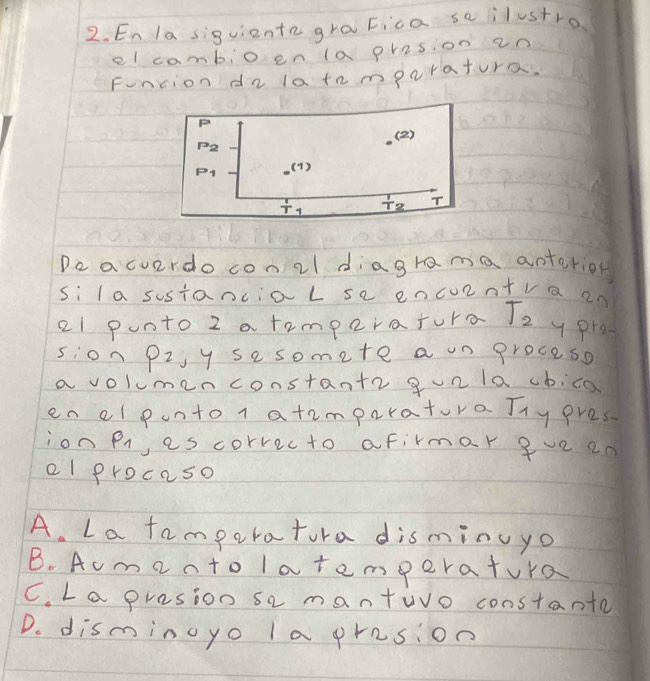 2. En la siguiente grafica se ilustra
el cambio en la presion en
Funcion de la temperatura.
P
P2
P1
.(1)
.(2)
T1
T2
T
De acuerdo con el diagrama anterior,
si la sustancia L se encuentra en
el punto 2 a temperatura T2 y pre-
sion P2, y se somete a un proceso
a volumen constante que la ubica
en el punto 1 a temperatura T1 y pres-
ion P1, es correcto afirmar que en
el proceso
A. La temperatura disminuyo
B. Aumento la temperatura
C. La presion se mantuvo constante
D. disminuyo la presion